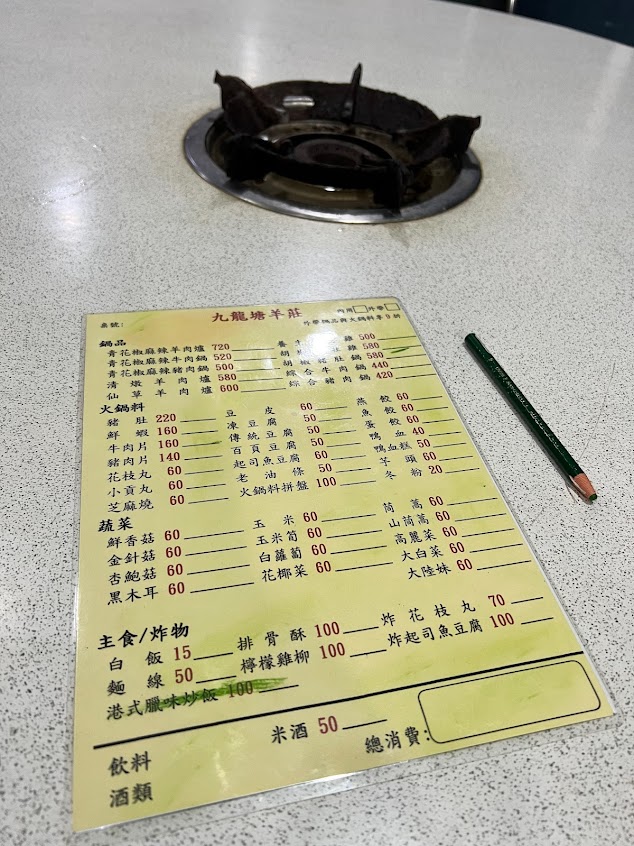 桌號:
九龍塘羊莊
內用□外帶□
外帶鍋品與火鍋料享9折
鍋品
青花椒麻辣羊肉爐 720
青花椒麻辣牛肉鍋 520
青花椒麻辣豬肉鍋 500
清燉羊肉爐 580
仙草羊肉爐 600
養 雞 500
胡 雞 580
胡椒豬肚鍋 580
綜合牛肉鍋 440
綜合豬肉鍋 420
火鍋料
豬肚 220
鮮蝦 160
牛肉片 160
豬肉片 140
花枝丸 60
小貢丸 60
芝麻燒 60
豆皮 60
凍豆腐 50
傳統豆腐 50
百頁豆腐 50
起司魚豆腐 60
老油條 50
火鍋料拼盤 100
燕餃 60
魚餃 60
蛋餃 60
鴨血 40
鴨血糕 50
芋頭 60
冬粉 20
蔬菜
鮮香菇 60
金針菇 60
杏鮑菇 60
黑木耳 60
玉米 60
玉米筍 60
白蘿蔔 60
花椰菜 60
茼萵 60
山茼萵 60
高麗菜 60
大白菜 60
大陸妹 60
主食/炸物
白飯 15
麵線 50
港式臘味炒飯 100
排骨酥 100
檸檬雞柳 100
炸花枝丸 70
炸起司魚豆腐 100
飲料
酒類
米酒 50
總消費: